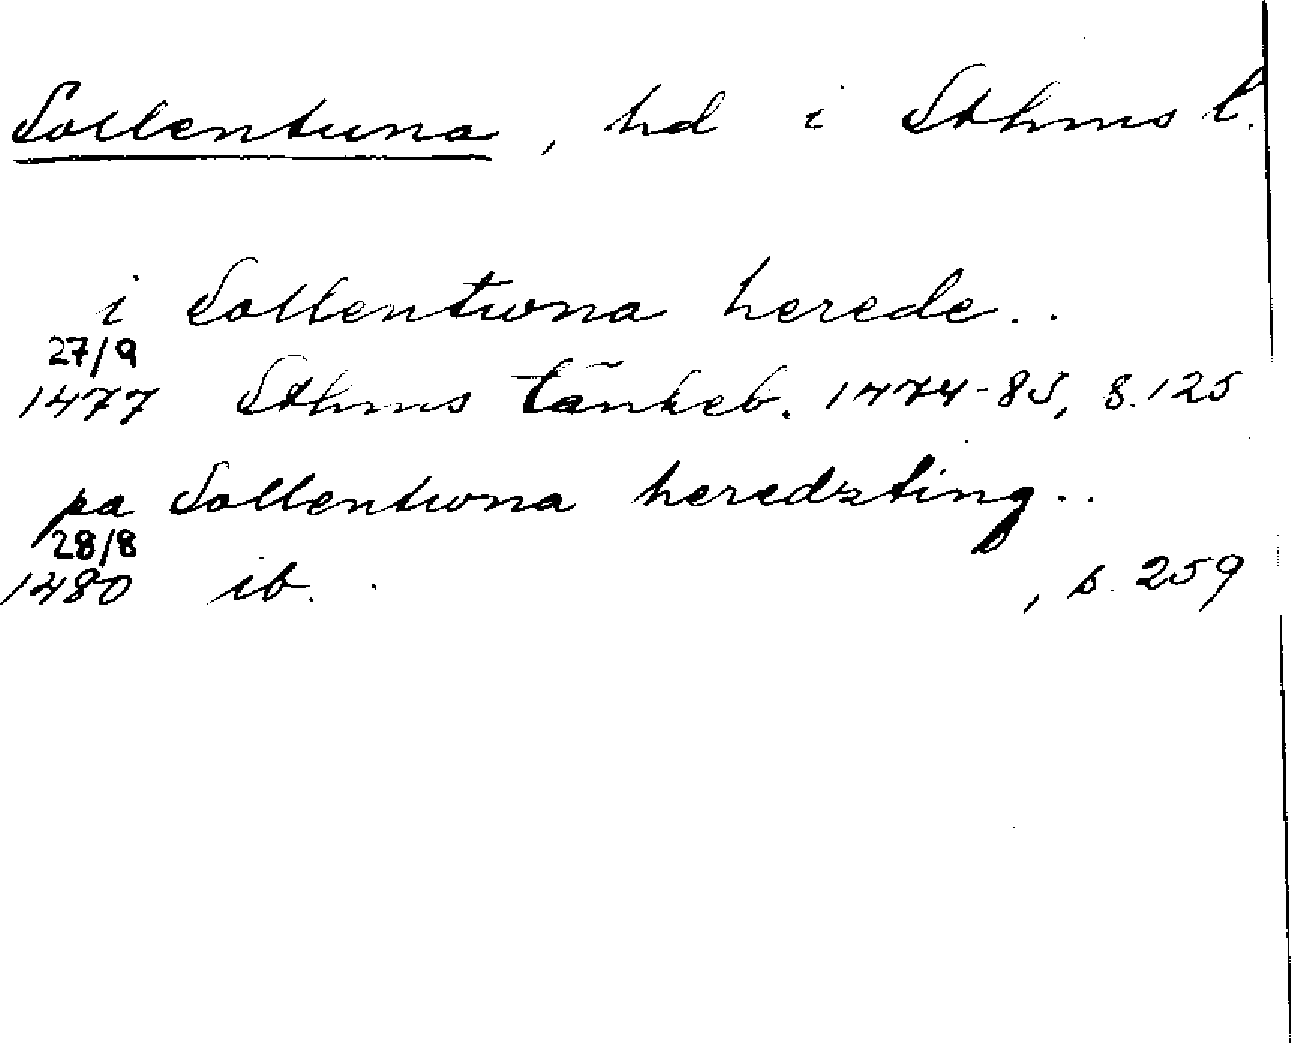 Sollentuna, hd i Sthms l.
i Sollentwna herede..
27/9
1477 Sthms tänkeb. 1474-85, s. 125
pa Sollentwna heredzting..
28/8
1480 ib. , s. 259